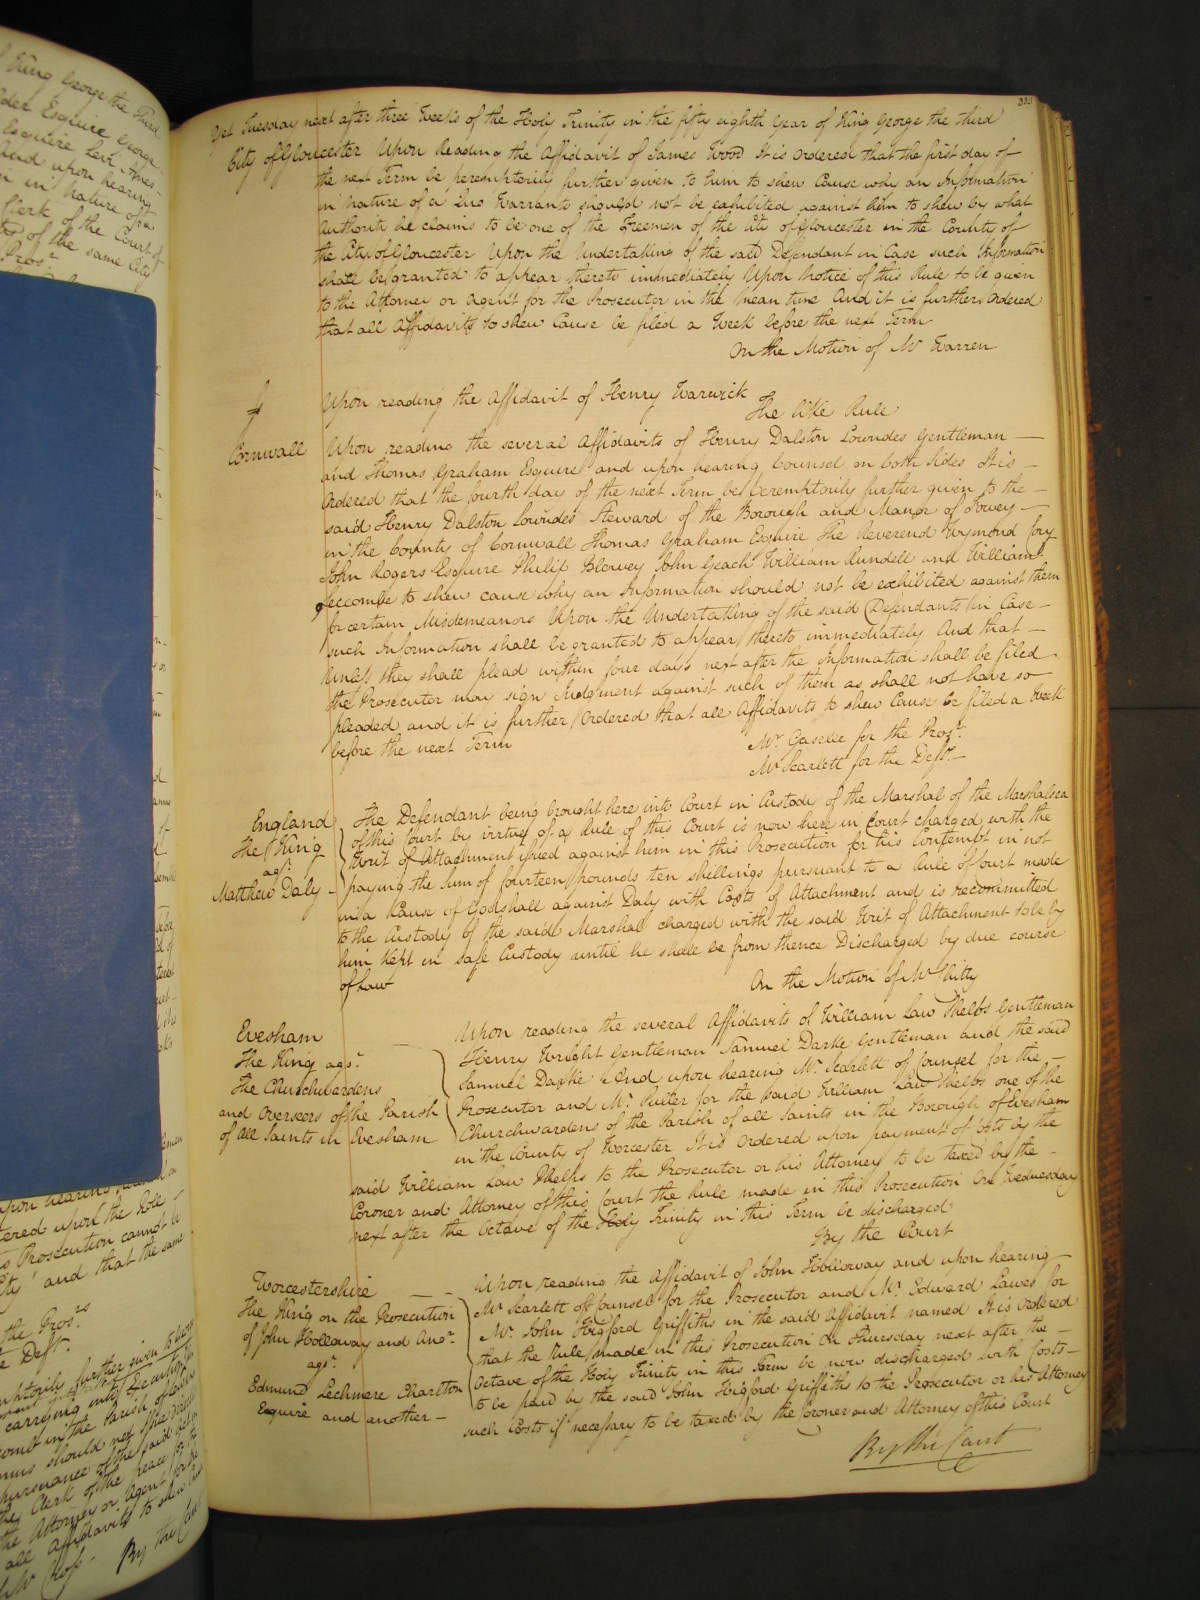 333
Yet Tuesday next after three Weeks of the Holy Trinity in the fifty eighth Year of King George the third
City of Gloucester Upon Reading the Affidavit of James Wood It is Ordered that the first day of
the next Term be peremptorily further given to him to shew Cause why an Information
in Nature of a Quo Warranto should not be exhibited against him to shew by what
Authority he claims to be one of the Freemen of the City of Gloucester in the County of
the City of Gloucester Upon the Undertaking of the said Defendant in Case such Information
shall be granted to appear thereto immediately Upon Notice of this Rule to be given
to the Attorney or Agent for the Prosecutor in the mean time And it is further Ordered
that all Affidavits to shew Cause be filed a Week before the next Term
On the Motion of Mr Warren
Upon reading the Affidavit of Henry Warwick
The like Rule
Cornwall
Upon reading the several Affidavits of Henry Dalston Lowndes Gentleman
and Thomas Graham Esquire and upon hearing Counsel on both sides It is
Ordered that the fourth day of the next Term be peremptorily further given to the
said Henry Dalston Lowndes Steward of the Borough and Manor of Fowey
in the County of Cornwall Thomas Graham Esquire The Reverend Wymond Cory
John Rogers Esquire Philip Blewey John Geach William Rundell and William
Seccombe to shew cause why an Information should not be exhibited against them
for certain Misdemeanors Upon the Undertaking of the said Defendants in Case
such Information shall be granted to appear thereto immediately And that
Unless they shall plead within four days next after the Information shall be filed
the Prosecutor may sign Judgment against such of them as shall not have so
pleaded and it is further Ordered that all Affidavits to shew Cause be filed a Week
before the next Term
Mr. Gaselee for the Prosr.
Mr Scarlett for the Deft.
England
The King
agt.
Matthew Daly
The Defendant being brought here into Court in Custody of the Marshal of the Marshalsea
of this Court by virtue of a Rule of this Court is now here in Court charged with the
Writ of Attachment issued against him in this Prosecution for his Contempt in not
paying the Sum of fourteen pounds ten shillings pursuant to a Rule of Court made
in a Cause of Godshall against Daly with Costs of Attachment and is recommitted
to the Custody of the said Marshal charged with the said Writ of Attachment to be by
him kept in safe Custody until he shall be from thence Discharged by due course
of Law
On the Motion of Mr Chitty
Evesham
The King agt.
The Churchwardens
and Overseers of the Parish
of All Saints in Evesham
Upon reading the several Affidavits of William Law Phelps Gentleman
Henry Wright Gentleman Samuel Darke Gentleman and the said
Samuel Darke And upon hearing Mr. Scarlett of Counsel for the
Prosecutor and Mr. Puller for the said William Law Phelps one of the
Churchwardens of the Parish of all Saints in the Borough of Evesham
in the County of Worcester It is Ordered upon payment of Costs by the
said William Law Phelps to the Prosecutor or his Attorney to be taxed by the
Coroner and Attorney of this Court the Rule made in this Prosecution On Wednesday
next after the Octave of the Holy Trinity in this Term be discharged
By the Court
Worcestershire
The King on the Prosecution
of John Holloway and Anor.
agt.
Edmund Lechmere Charlton
Esquire and another
Upon reading the Affidavit of John Holloway and upon hearing
Mr. Scarlett of Counsel for the Prosecutor and Mr. Edward Lawes for
Mr. John Higford Griffiths in the said Affidavit named It is Ordered
that the Rule made in this Prosecution On Thursday next after the
Octave of the Holy Trinity in this Term be now discharged with Costs
to be paid by the said John Higford Griffiths to the Prosecutor or his Attorney
such Costs if necessary to be taxed by the Coroner and Attorney of this Court
By the Court